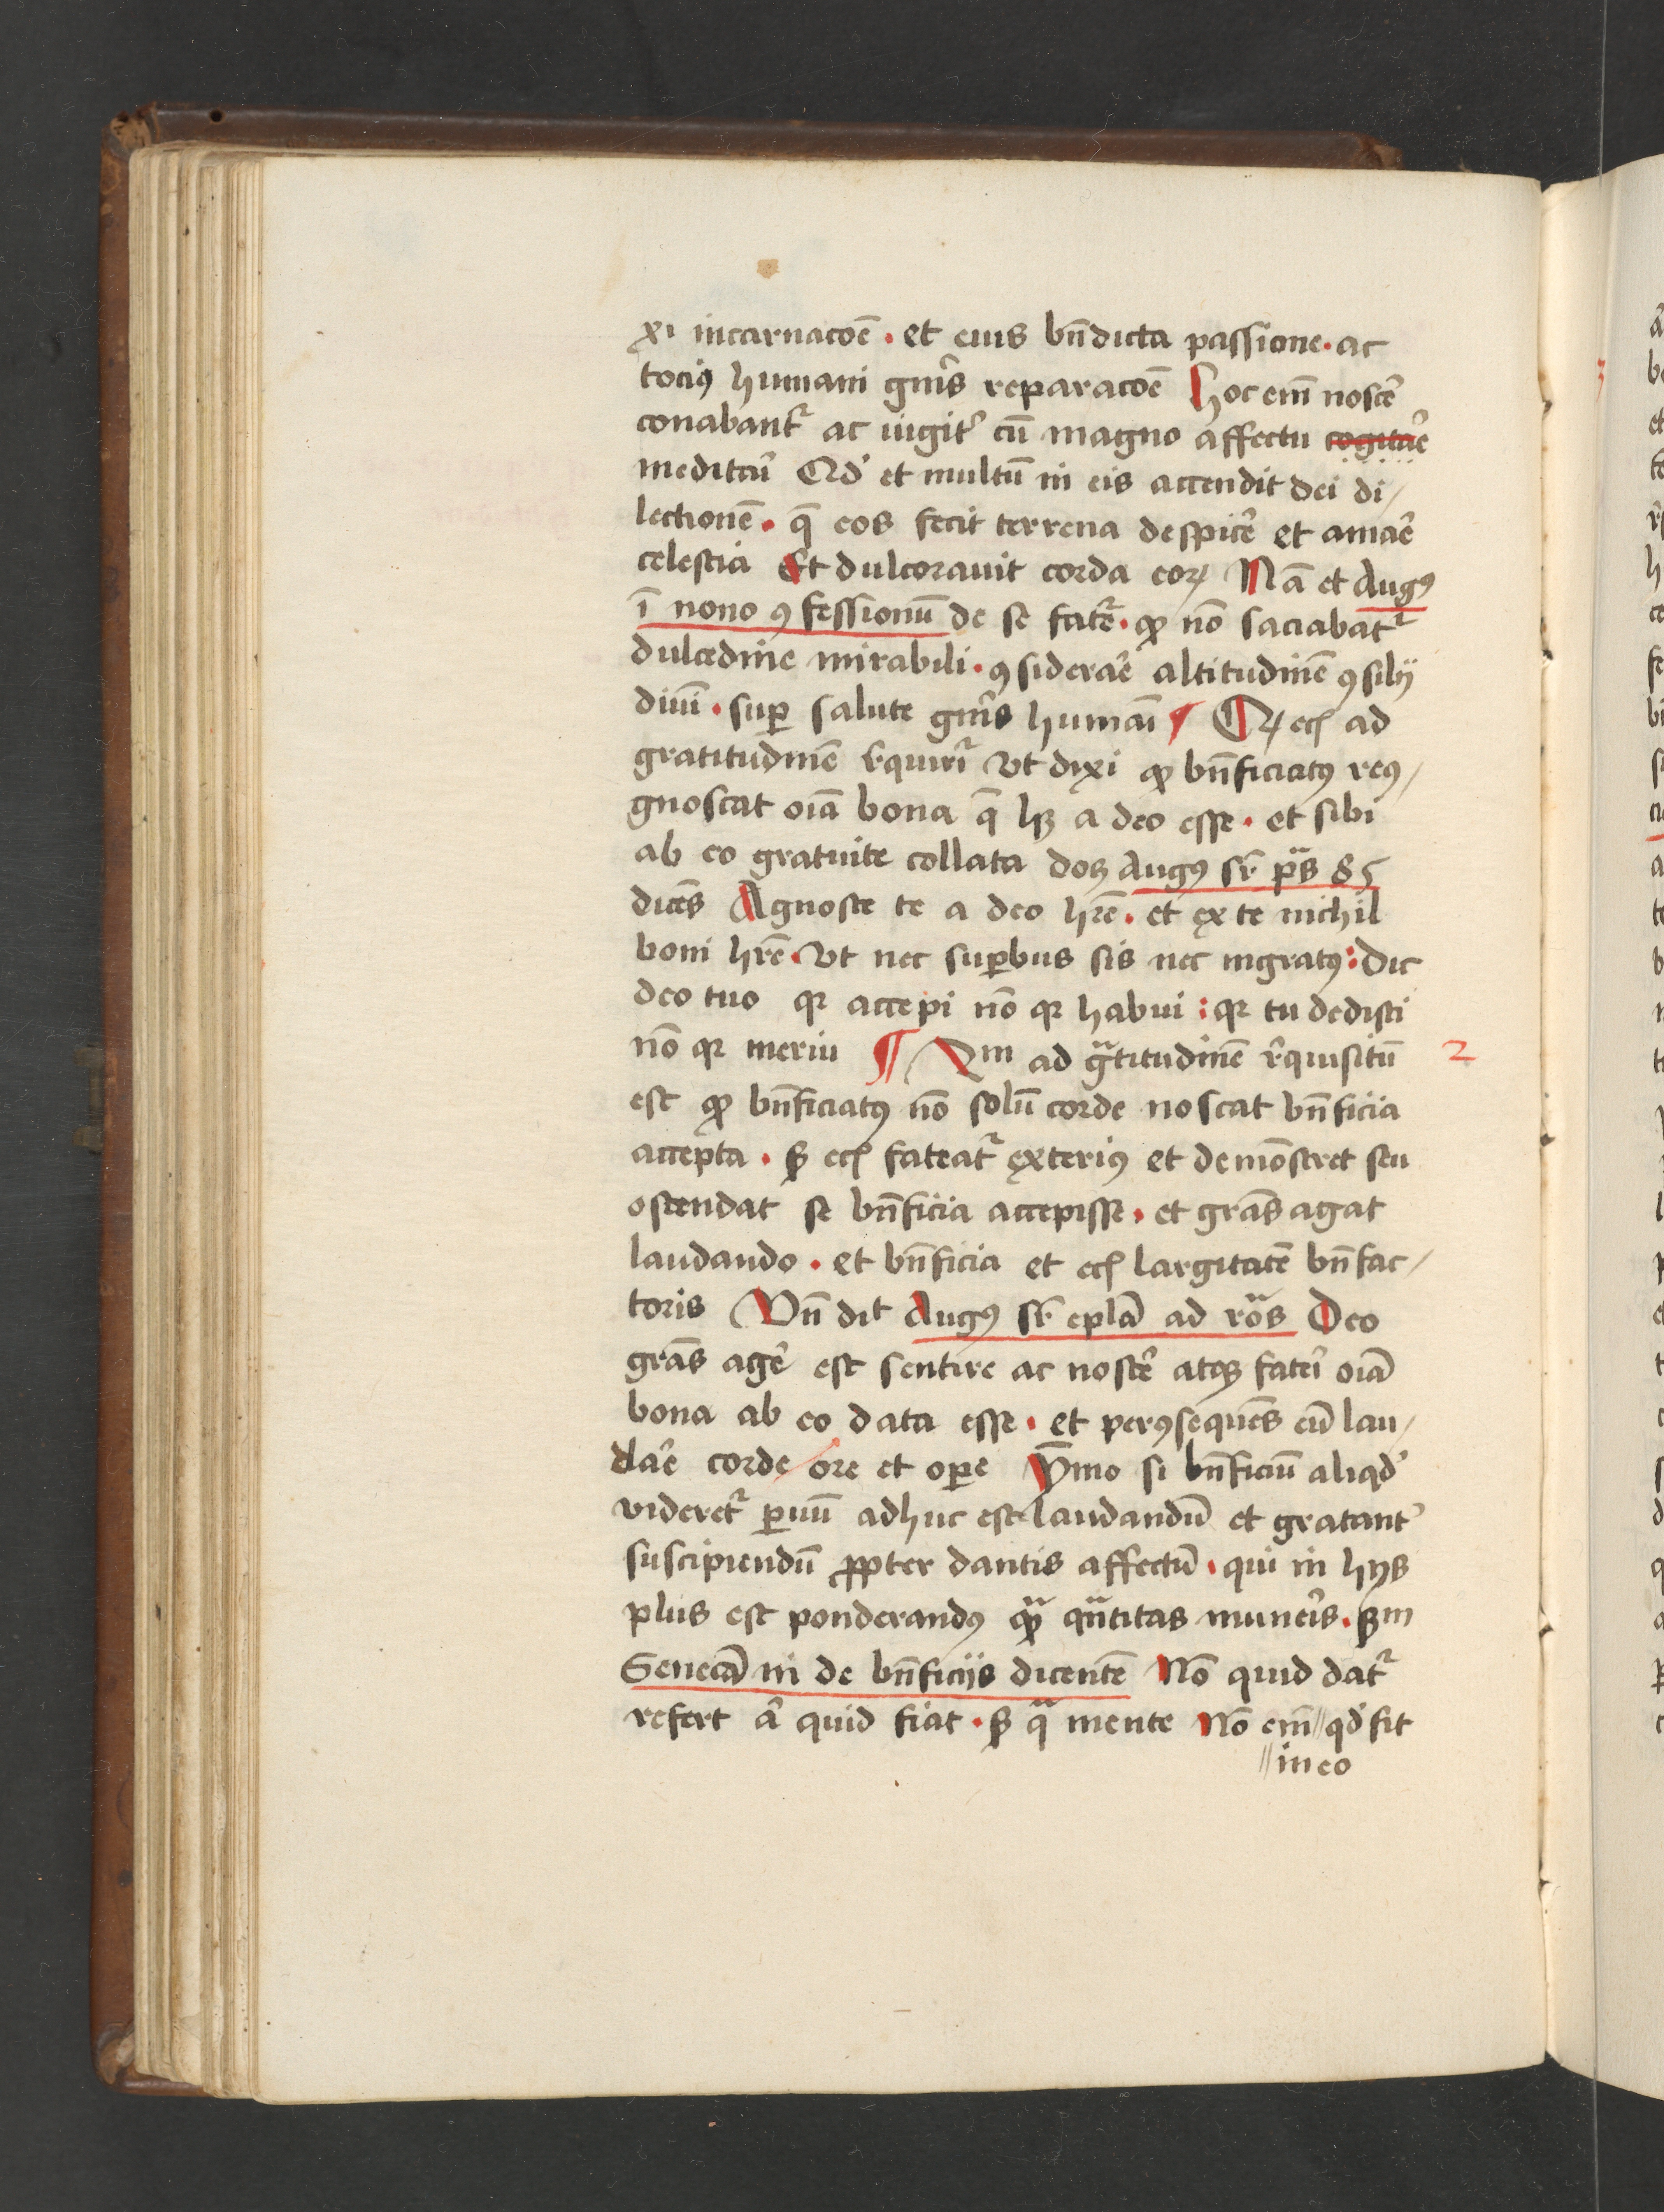 xı incarnacōē · et eius bn̄dicta passione · ac
tociꝰ humani gn̄is reparacōē Hoc em̄ noscē
conabant᷑ ac iugit᷑ cū magno affectu cogitāē
meditāi Qd' et multū in eis accendit dei di/
lectionē · q̄ eos fecit terrena despicē et amāē
celestia Et dulcorauit corda eoꝝ Nā et Augꝰ
ī nono ꝯfessionū de se fatē᷑ · ꝙ nō saciabat᷑
dulcedine mirabili · ꝯsiderāē altitudinē ꝯsilij
diuī · suꝑ salute gn̄is humāī ¶ Qꝛ ecꝭ ad
gratitudinē r̄quiri᷑ vt dixi ꝙ bn̄ficiatꝰ recꝰ/
gnoscat oīa bona q̄ hꝫ a deo esse · et sibi
ab eo gratuite collata docꝫ Augꝰ sr̄ p̄s 85
dicēs Agnosce te a deo hr̄e · et ex te nichil
boni hr̄e · vt nec suꝑbus sis nec ingratꝰ : Dic
deo tuo qꝛ accepi nō qꝛ habui : qꝛ tu dedisti
nō qꝛ merui ¶ 2m ad gᷓtitudinē r̄quisitū
2
est ꝙ bn̄ficiatꝰ nō solū corde noscat bn̄ficia
accepta · sꝫ ecꝭ fateat᷑ exteriꝰ et demōstret seu
ostendat se bn̄ficia accepisse · et grās agat
laudando · et bn̄ficia et ecꝭ largitatē bn̄fac/
toris Vn̄ dit Augꝰ sr̄ eplā ad roᷓs Deo
grās agē est sentire ac noscē atqꝫ fatēi oīa
bona ab eo data esse · et perꝯsequēs eū lau/
dāē corde ore et oꝑe Ymo si bn̄ficiū aliqd'
videret᷑ ꝑuū adhuc est laudandū et gratant᷑
suscipiendū ꝓpter dantis affectū · qui in hijs
plus est ponderandꝰ qᷓ qᷓntitas munēis · sꝫm
Senecā in de bn̄ficijs dicentē Nō quid dat᷑
refert a᷑ quid fiat · sꝫ qᷓ mente Nō em̄ // qd' fit
// in eo